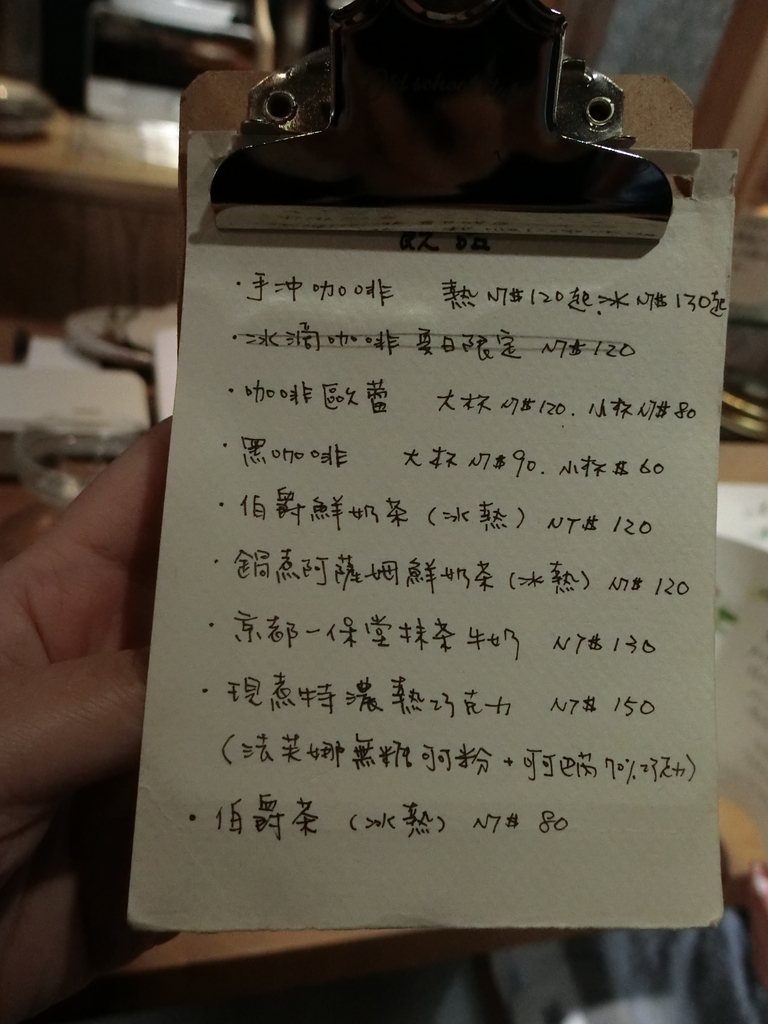 飲品
·手冲咖啡 熱 NT$120起.冰 NT$130起
·冰滴咖啡 夏日限定 NT$120
·咖啡歐蕾 大杯 NT$120. 小杯 NT$80
·黑咖啡 大杯 NT$90. 小杯 $60
·伯爵鮮奶茶 (冰熱) NT$ 120
·鍋煮阿薩姆鮮奶茶 (冰熱) NT$ 120
·京都一保堂抹茶牛奶 NT$130
·現煮特濃熱巧克力 NT$ 150
(法芙娜無糖可可粉 + 可可巴芮 70%巧克力)
·伯爵茶 (冰熱) NT$ 80